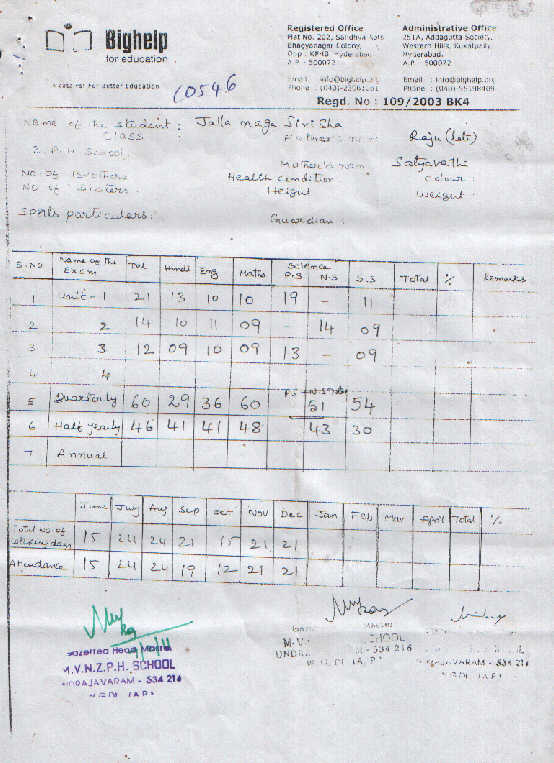 Bighelp
for education
10546
Registered Office
Flat No. 202, Sandhya Apts
Bhagyanagar Colony,
Opp. KPHB, Hyderabad
A.P - 500072
Email : info@bighelp.org
Phone : (040)-23061561
Administrative Office
251A, Addagutta Society,
Western Hills, Kukatpally,
Hyderabad.
A.P - 500072
Email : info@bighelp.org
Regd. No : 109/2003 BK4
Name of the student : Jalla naga Siri sha
Class
Father's name Raju (late)
Z.P.H School
Mother's name Satyavathi
No. of Brothers Health condition Colour :
No of Sisters : Height Weight :
Sports particulars : Guardian :
S.NO Name of the Exam Tel Hindi Eng Maths Science P.S N.S S.S Total % Remarks
1 Unit - 1 21 13 10 10 19 - 11
2 2 14 10 11 09 - 14 09
3 3 12 09 10 09 13 - 09
4 4
5 Quarterly 60 29 36 60 51 54
6 Half yearly 46 41 41 48 43 30
7 Annual
June July Aug Sep Oct Nov Dec Jan Feb Mar April Total %
Total No. of working days 15 24 24 21 15 21 21
Attendance 15 24 24 19 12 21 21
Gazetted Head Master
M.V.N.Z.P.H. SCHOOL
UNDRAJAVARAM - 534 216
W.G.Dt. (A.P.)